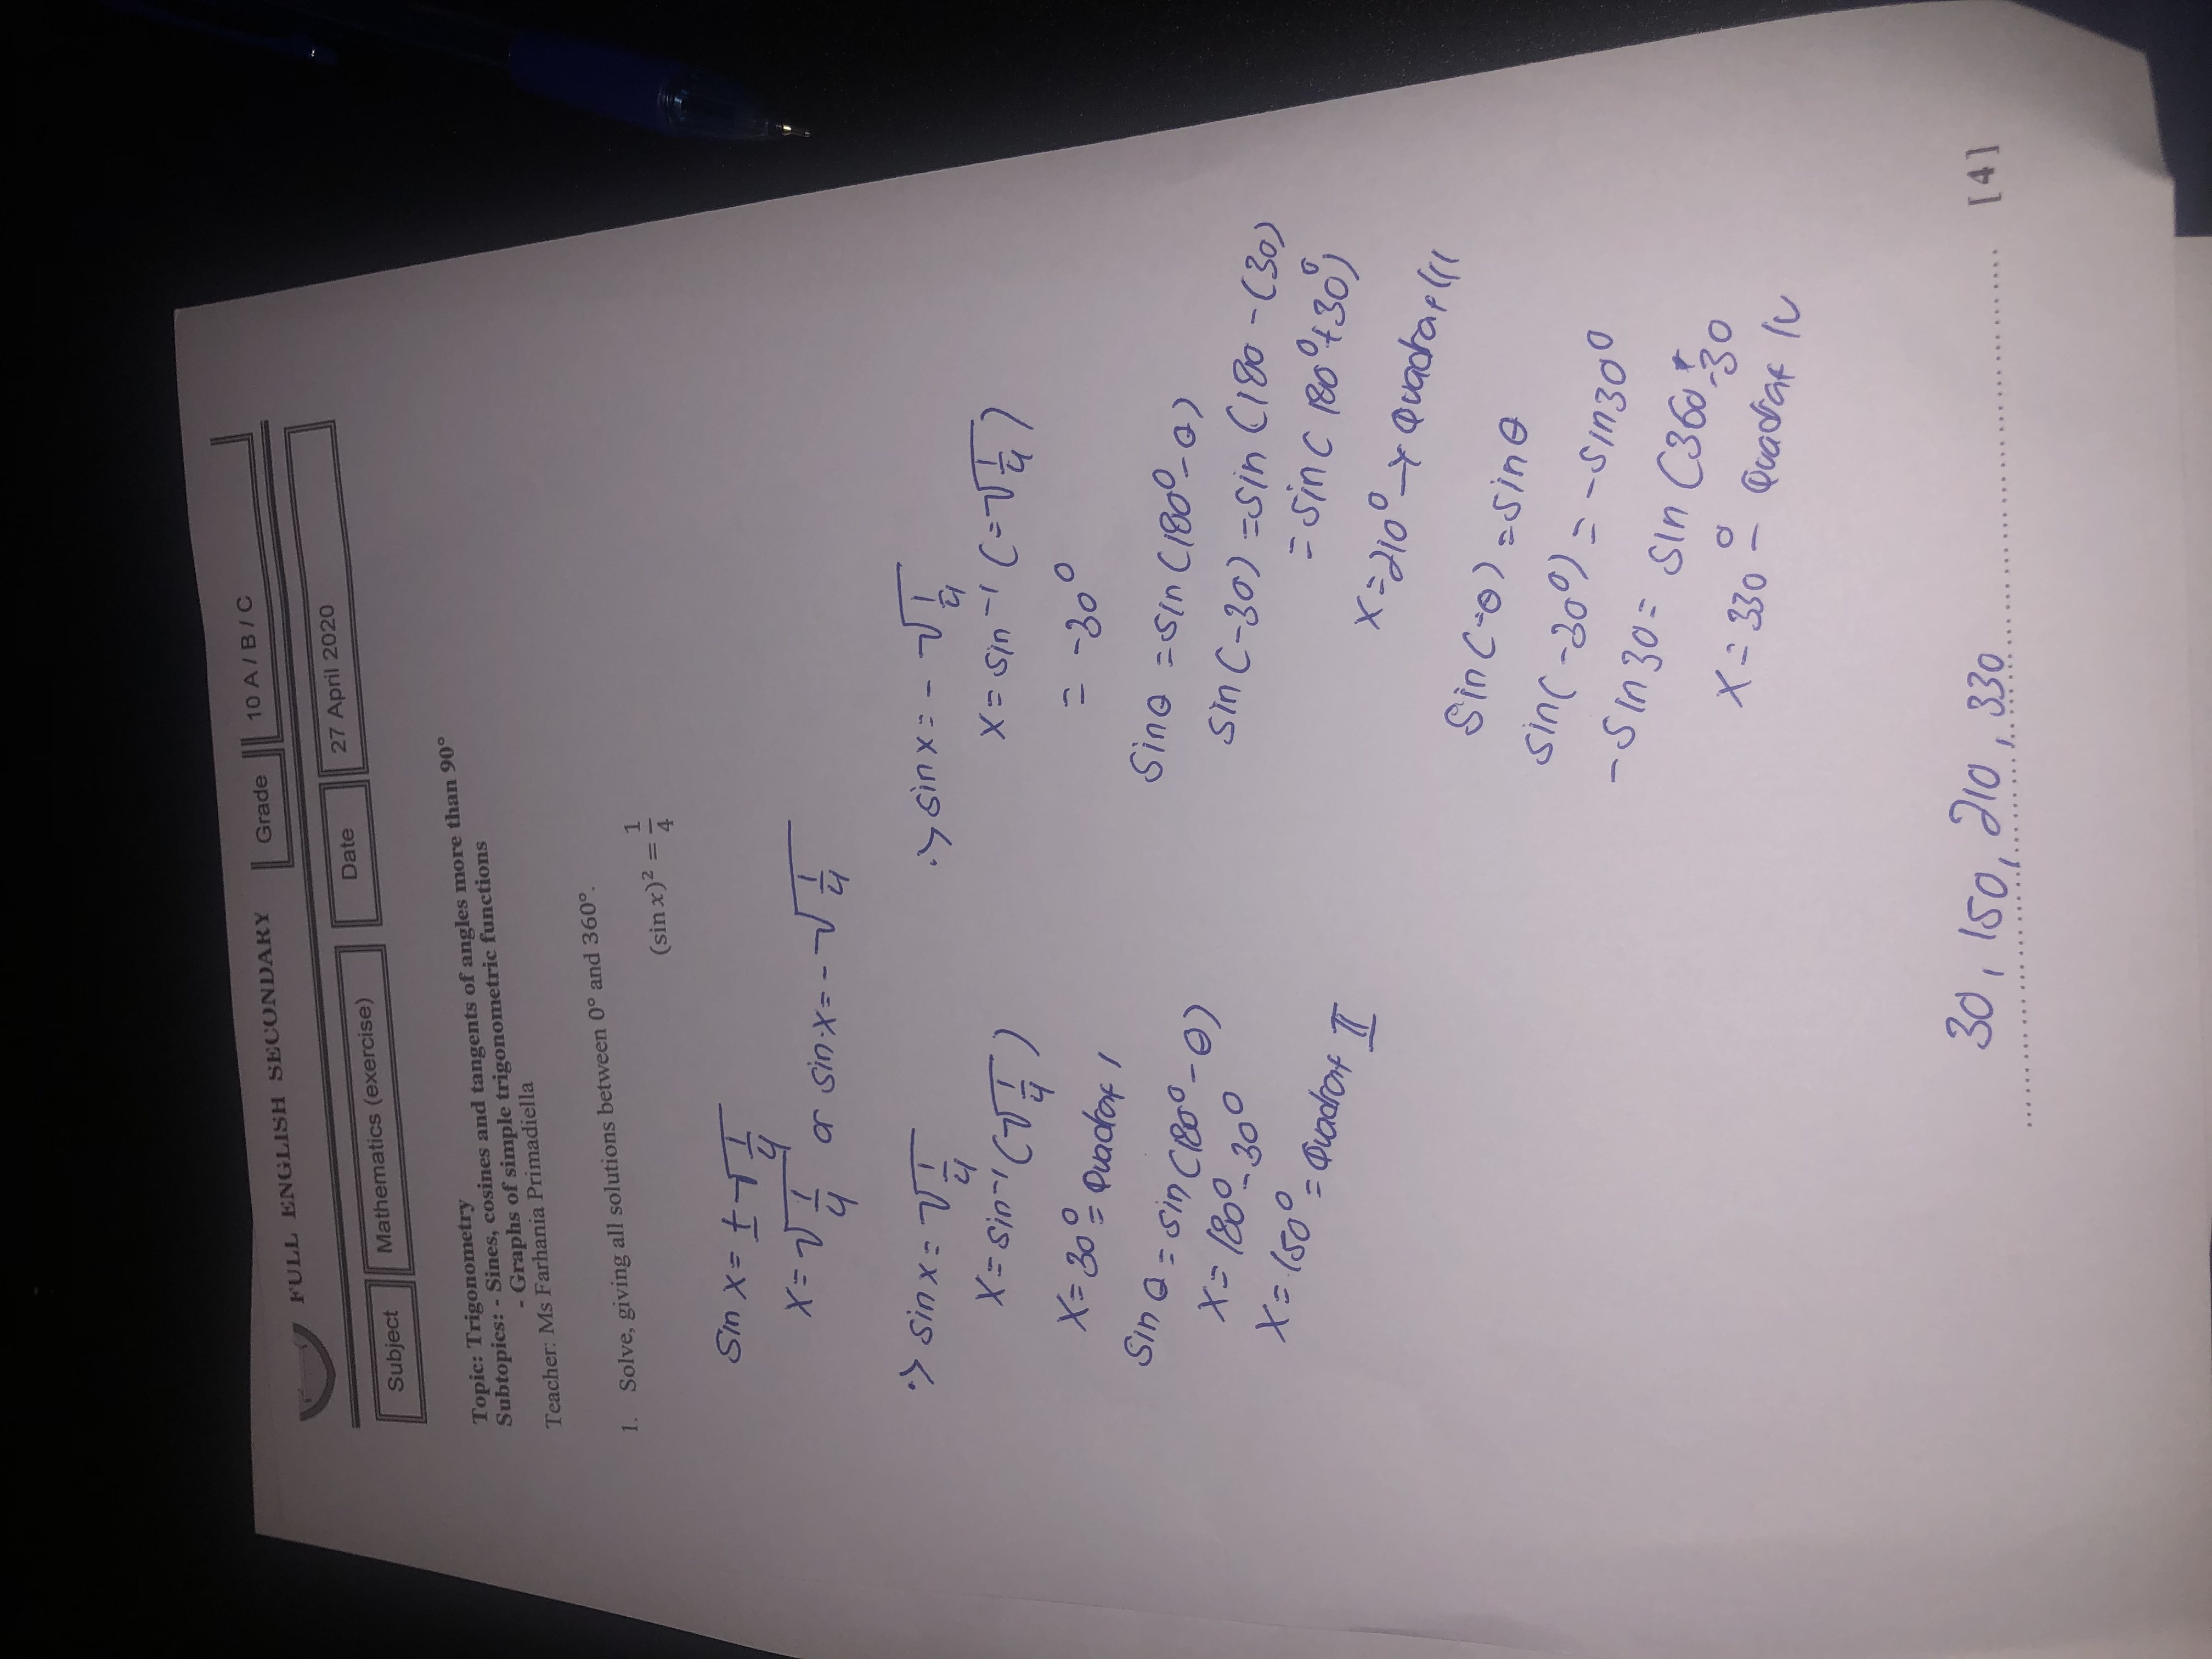 FULL ENGLISH SECONDARY
Grade
10 A / B / C
Subject
Mathematics (exercise)
Date
27 April 2020
Topic: Trigonometry
Subtopics: - Sines, cosines and tangents of angles more than 90°
- Graphs of simple trigonometric functions
Teacher: Ms Farhania Primadiella
1. Solve, giving all solutions between 0° and 360°.
(sin x)² = 1/4
Sin x = ± √1/4
x = √1/4 or sin x = - √1/4
•> sin x = √1/4
x = sin⁻¹ (√1/4)
x = 30° = Quadrat I
Sin θ = sin (180° - θ)
x = 180° - 30°
x = 150° = Quadrat II
•> sin x = - √1/4
x = sin⁻¹ (-√1/4)
= -30°
Sin θ = sin (180° - θ)
sin (-30) = sin (180 - (30)
= sin ( 180° + 30°)
x = 210° → Quadrat III
Sin (-θ) = sin θ
sin( -30°) = - sin 30°
- sin 30 = sin (360 - 30
x = 330° - Quadrat IV
30, 150, 210, 330 [4]